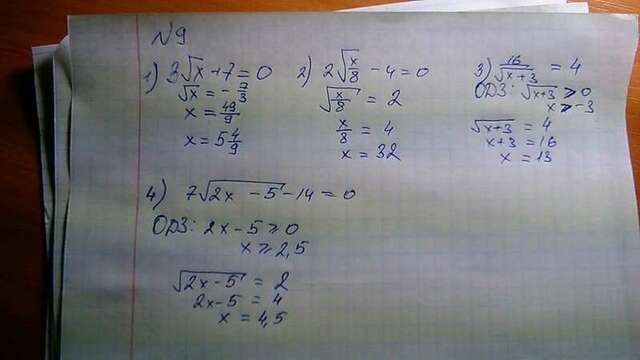 N9
1) 3√x + 7 = 0
√x = - 7/3
x = 49/9
x = 5 4/9
2) 2√(x/8) - 4 = 0
√(x/8) = 2
x/8 = 4
x = 32
3) 16/√(x+3) = 4
ОДЗ: √(x+3) > 0
x > -3
√(x+3) = 4
x+3 = 16
x = 13
4) 7√(2x - 5) - 14 = 0
ОДЗ: 2x - 5 ⩾ 0
x ⩾ 2,5
√(2x - 5) = 2
2x - 5 = 4
x = 4,5